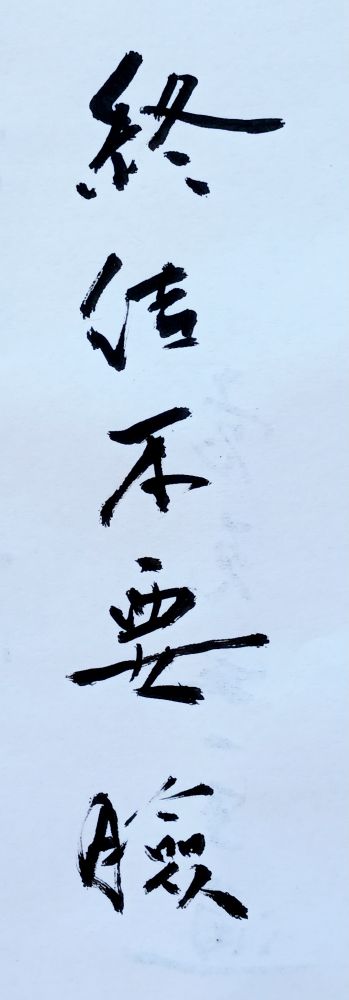 終結不要臉